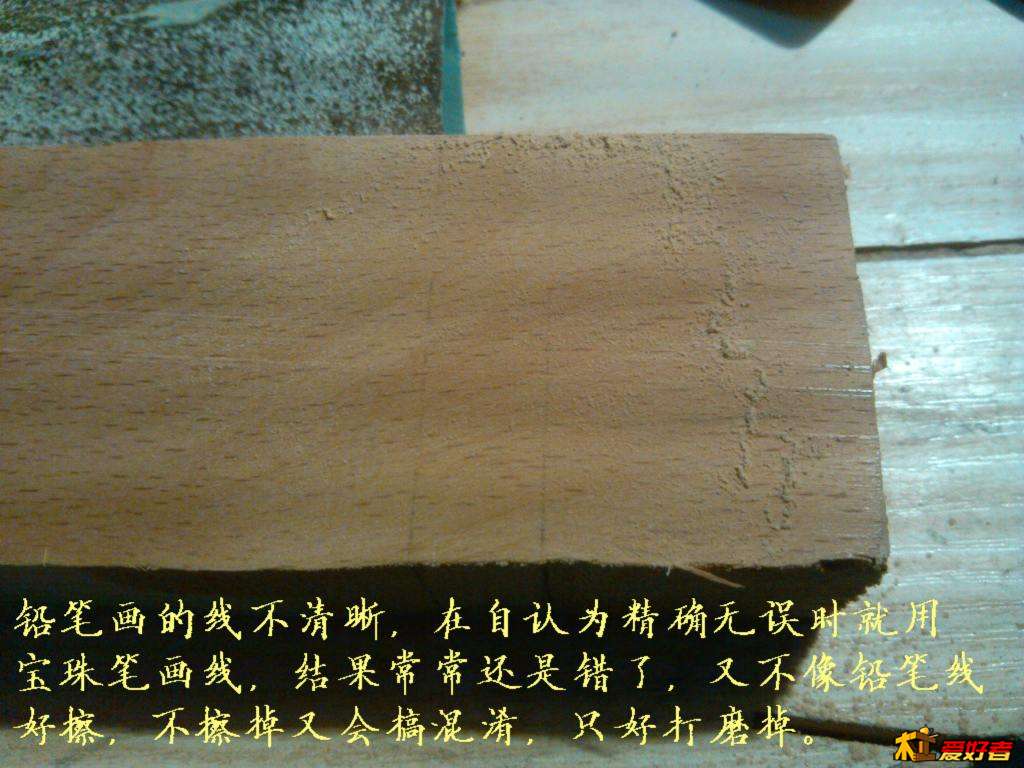 铅笔画的线不清晰，在自认为精确无误时就用
宝珠笔画线，结果常常还是错了，又不像铅笔线
好擦，不擦掉又会搞混淆，只好打磨掉。
木工爱好者